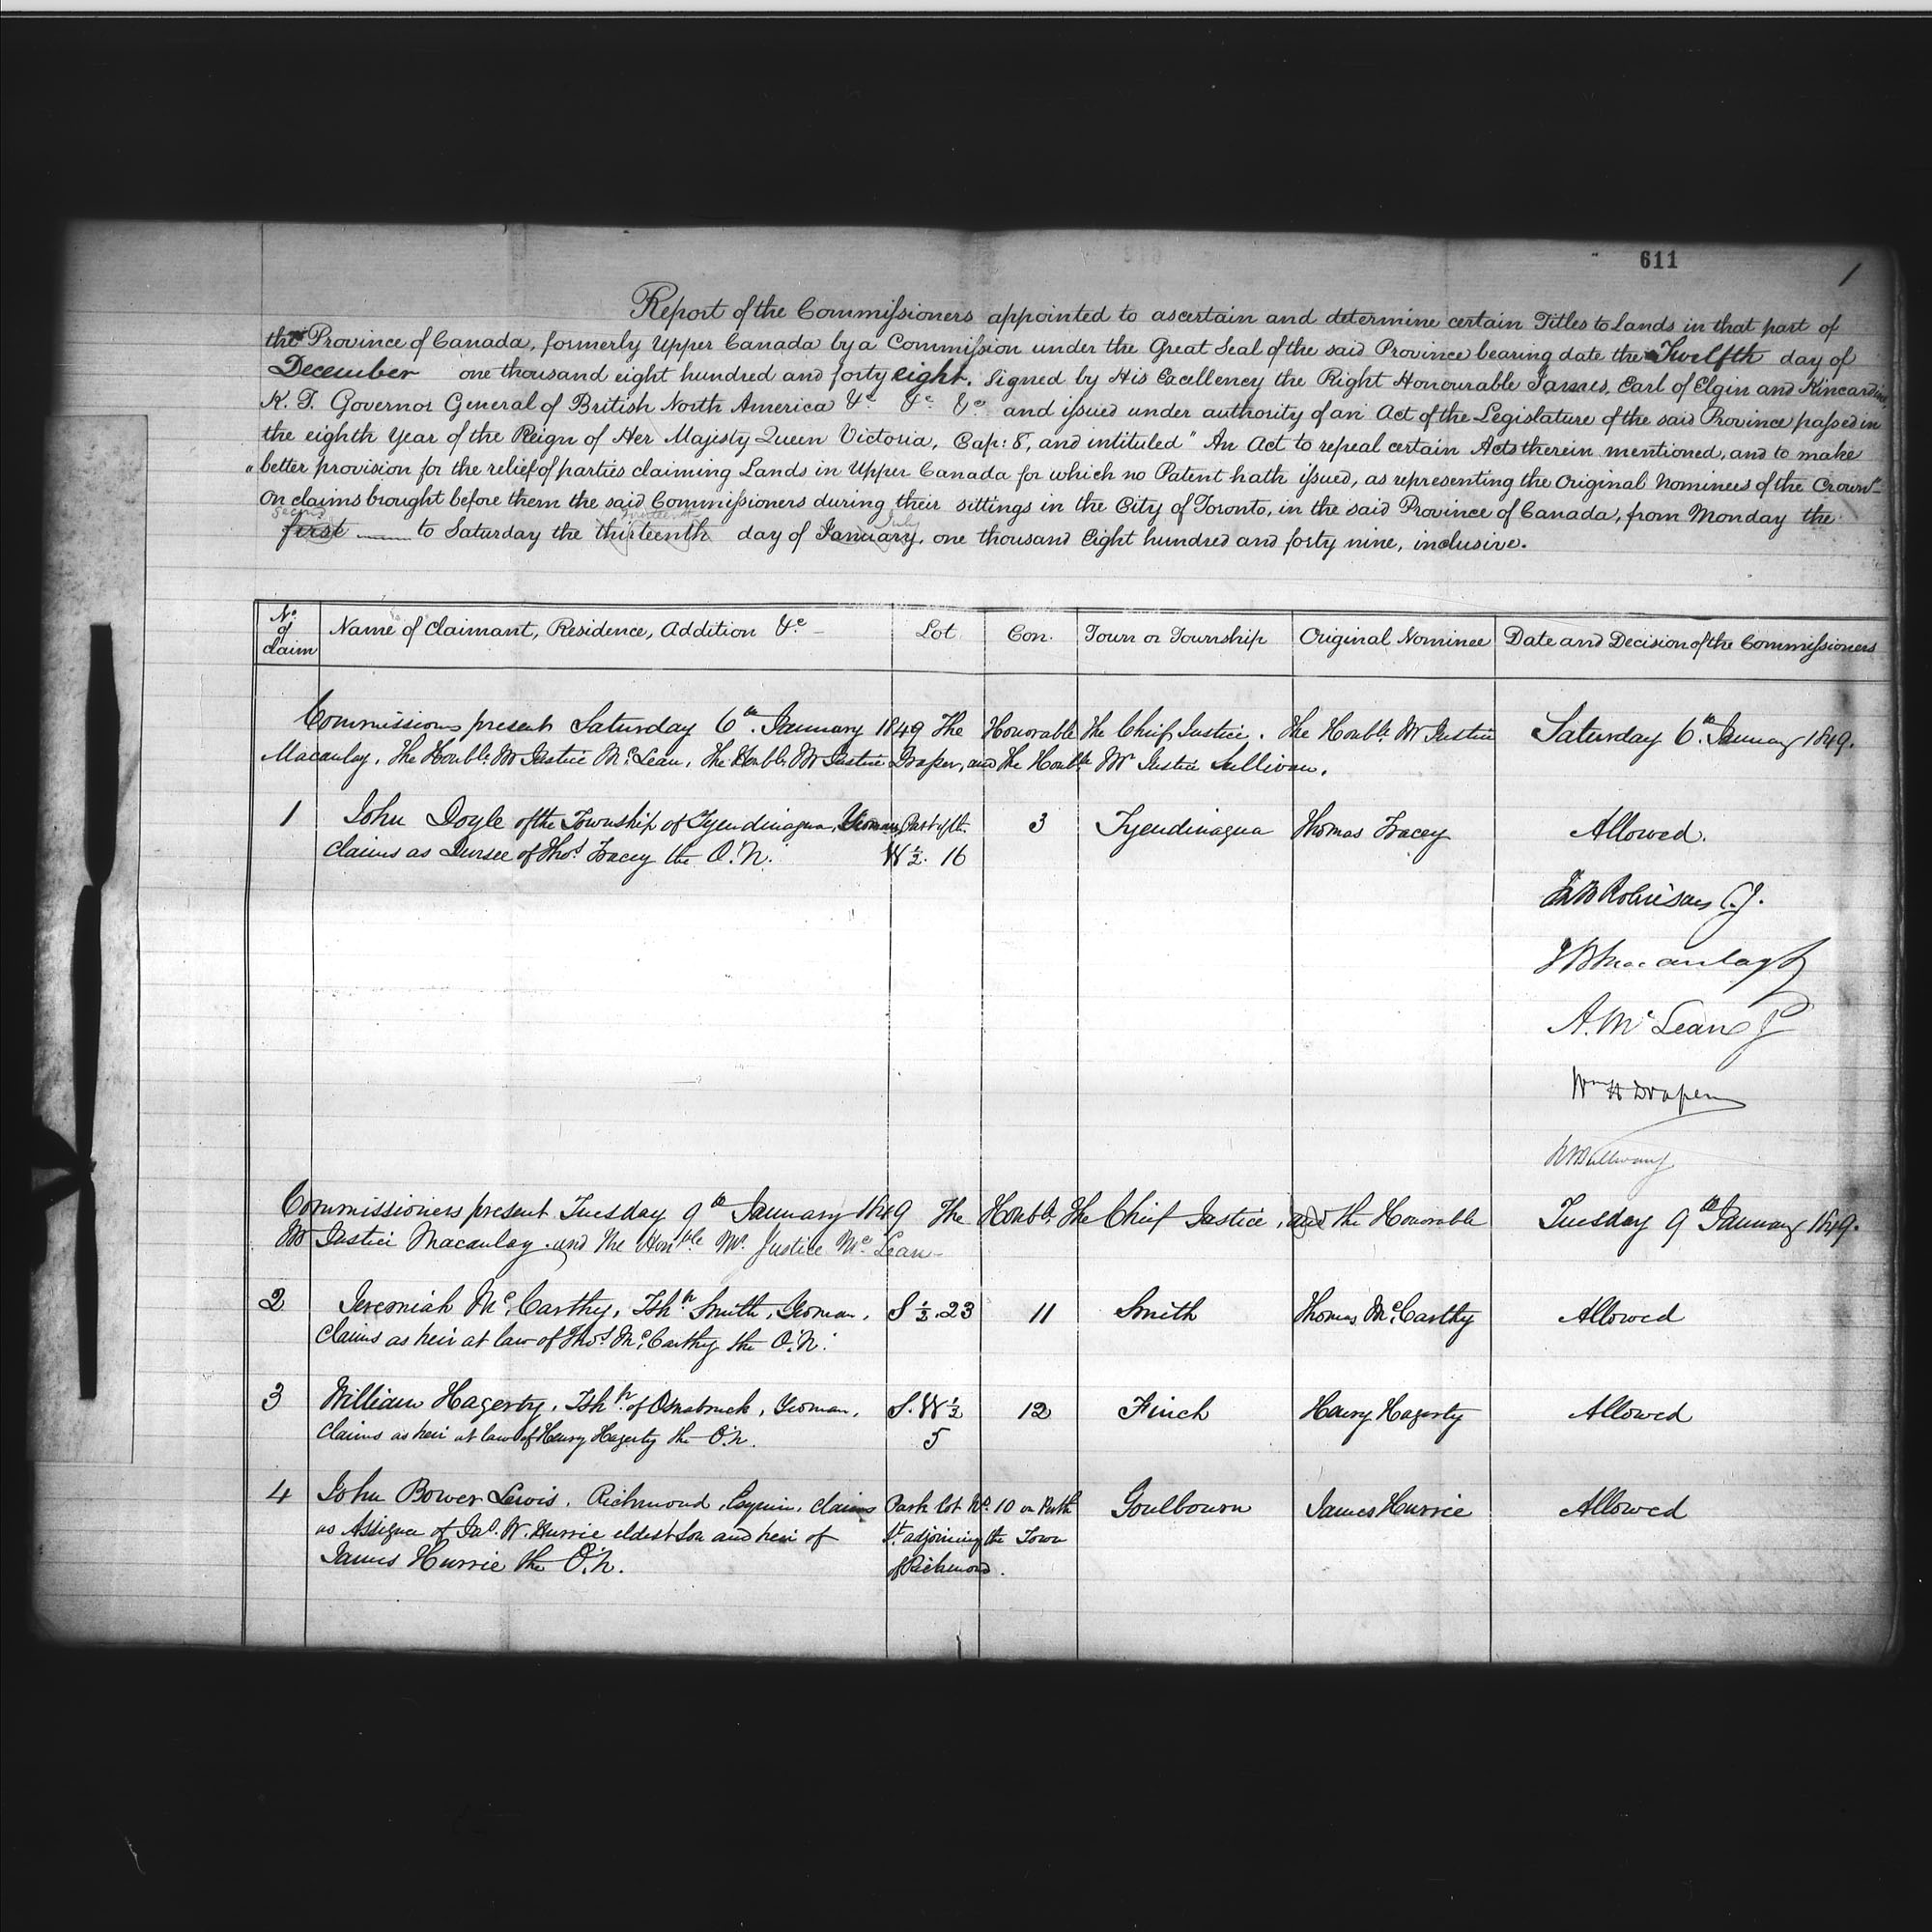 611
1
Report of the Commissioners appointed to ascertain and determine certain Titles to Lands in that part of
the Province of Canada, formerly Upper Canada by a Commission under the Great Seal of the said Province bearing date the Twelfth day of
December one thousand eight hundred and forty eight. Signed by His Excellency the Right Honourable James, Earl of Elgin and Kincardine,
K. T. Governor General of British North America &c &c &c and issued under authority of an Act of the Legislature of the said Province passed in
the eighth Year of the Reign of Her Majesty Queen Victoria, Cap: 8, and intituled " An Act to repeal certain Acts therein mentioned, and to make
" better provision for the relief of parties claiming Lands in Upper Canada for which no Patent hath issued, as representing the Original Nominees of the Crown"
On claims brought before them the said Commissioners during their sittings in the City of Toronto, in the said Province of Canada, from Monday the
second July
first to Saturday the thirteenth day of January, one thousand Eight hundred and forty nine, inclusive.
No. of claim | Name of Claimant, Residence, Addition &c | Lot | Con. | Town or Township | Original Nominee | Date and Decision of the Commissioners
Commissioners present Saturday 6th. January 1849 The Honorable The Chief Justice. The Honble. Mr Justice Saturday 6th. January 1849.
Macaulay, The Honble. Mr Justice McLean, The Honble. Mr Justice Draper, and The Honble Mr Justice Sullivan.
1 John Doyle of the Township of Tyendinagua, Yeoman, Part of the 3 Tyendinagua Thomas Tracey Allowed.
claims as Devisee of Thos. Tracey the O.N. W ½. 16
Jno B Robinson C.J.
J B Macaulay J
A. McLean J
Wm H Draper
R B Sullivan J
Commissioners present Tuesday 9th January 1849 The Honble. The Chief Justice, and the Honorable Tuesday 9th January 1849.
Mr Justice Macaulay and The Honble Mr. Justice McLean
2 Jeremiah McCarthy, Tshp. Smith, Yeoman, S ½. 23 11 Smith Thomas McCarthy Allowed
claims as heir at law of Thos. McCarthy the O.N.
3 William Hagerty, Tshp. of Osnabruck, Yeoman, S. W ½ 12 Finch Henry Hagerty Allowed
claims as heir at law of Henry Hagerty the O.N. 5
4 John Bower Lewis, Richmond, Esquire, claims Park lot No. 10 on Perth Goulbourn James Hurrie Allowed
as Assignee of Jas. W. Hurrie eldest Son and heir of St. adjoining the Town
James Hurrie the O.N. of Richmond.